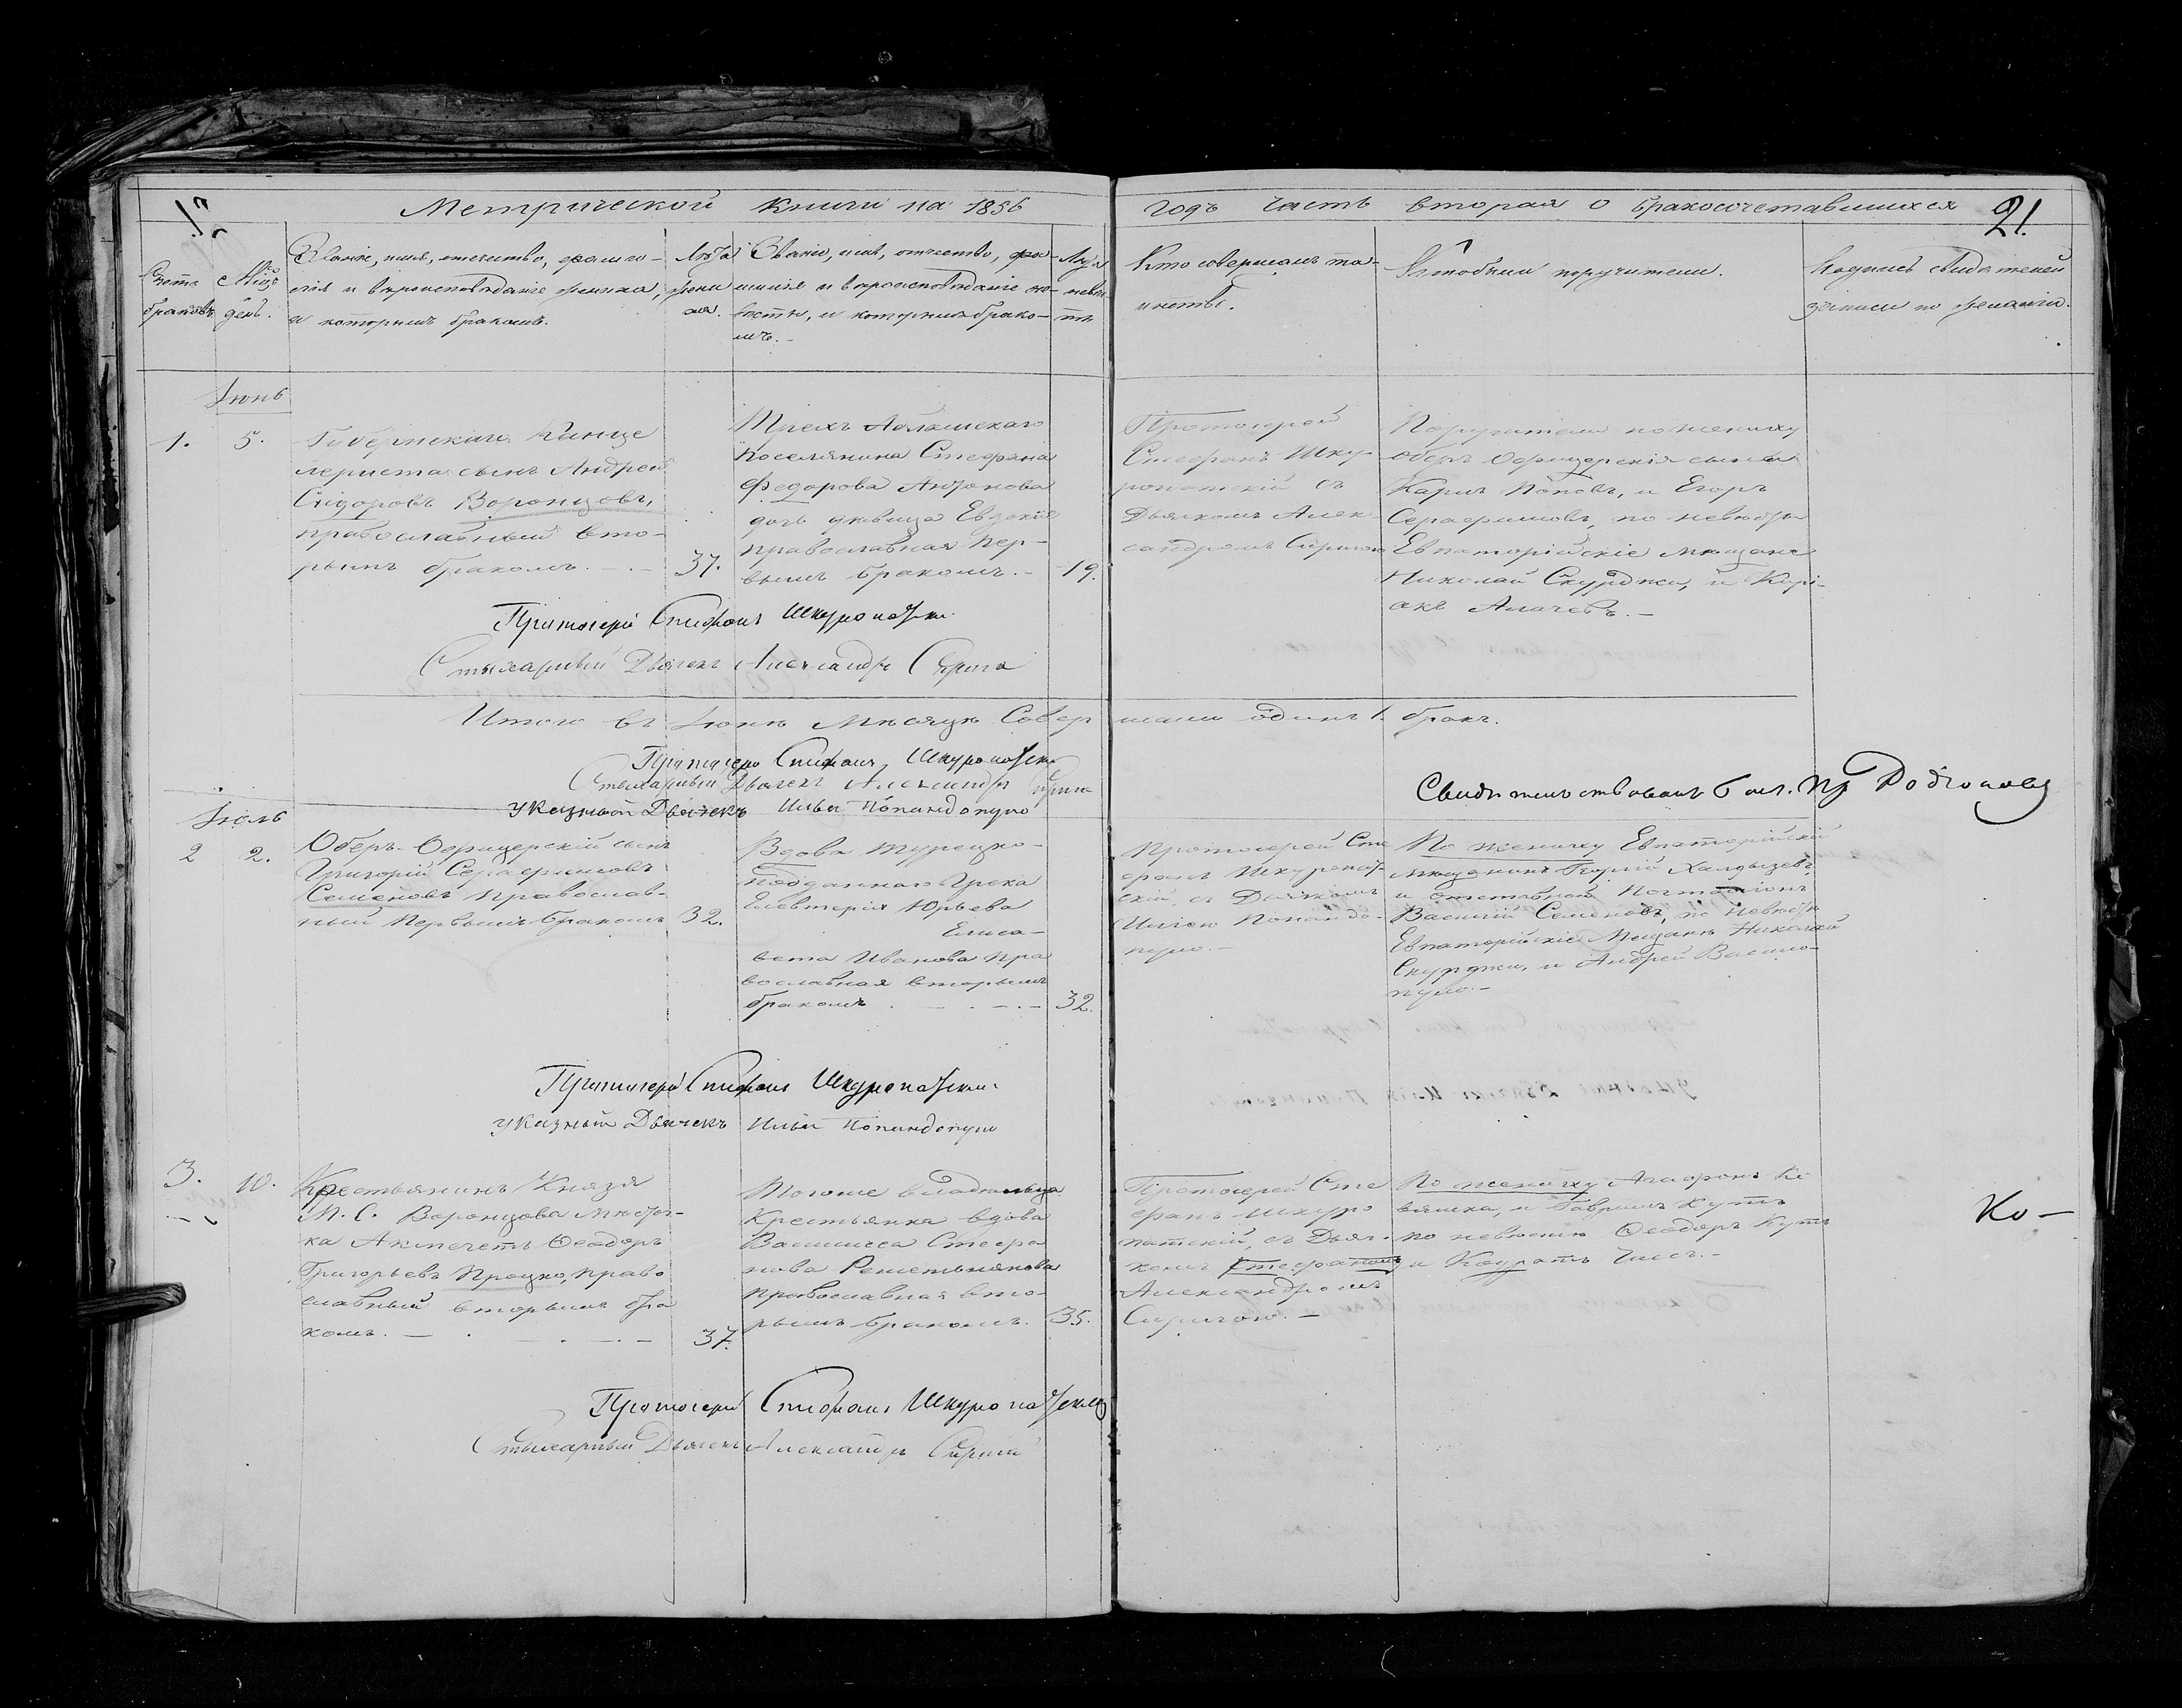 Метрической книги на 1856
годъ часть вторая о бракосочетавшихся 21.
Счетъ браковъ.
Мѣсяцъ день.
Званіе, имя, отечество, фами-
лія и вѣроисповѣданіе жениха,
и которымъ бракомъ.
Лѣта
жени
ха.
Званіе, имя, отчество, фа-
милія и вѣроисповѣданіе не-
вѣсты, и которымъ брако-
мъ.-
Лѣта
невѣс-
ты
Кто совершалъ та-
инство.
Кто были поручители.
Подпись свидѣтелей
записи по желанію.
Іюнь
1. 5.
Губернскаго Канце
леристасынъ Андрей
Сидоровъ Воронцовъ,
православный вто-
рымъ бракомъ. 37.
Трехъ Абламскаго
Поселянина Стефана
Федорова
дочь дѣвица Евдокія
православная пер-
вымъ бракомъ.- 19.
Протоіерей
Стефанъ Шку-
ропатскій съ
Дьячкомъ Алек-
сандромъ Сиригою
Поручители по жениху
оберъ Офицерскія сынья
Поповъ, и Егоръ
Серафимовъ, по невѣсты
Евпаторійскіе мѣщане
Николай Скурджи, и Кирі-
акъ Алачевъ.-
Протоіерей Стефанъ Шкуропатскі
Стихарный Дьячекъ Александръ Сирига
Итого въ Іюнѣ Мѣсяцѣ Совер шали одинъ 1. бракъ.
Протоіерей Стефанъ Шкуропатскі
Стихарный Дьячекъ Александръ Сирига
указный Дьячекъ Илья Попандопуло
Свидѣтельствовалъ Бл. Пр Родіоновъ
Іюль
2 2.
Оберъ-Офицерскій сынъ
Григорій Серафимовъ
Семеновъ Православ-
ный Первымъ бракомъ 32.
Вдова турецко-
подданнаго Грека
Елевтерія Юрьева
Елиса-
вета Иванова Пра
вославная вторымъ
бракомъ 32.
Протоіерей Сте
фанъ Шкуропат-
скій, съ Дьячкомъ
Ильею Попандо-
пуло.-
По жениху Евпаторійскій
мѣщанинъ Георгій Халдызевъ,
и
Василій Семеновъ, по невѣсты
Евпаторійскіе Мещане Николай
Скурджи, и Андрей Васило-
пуло.-
Протоіерей Стефанъ Шкуропатскі
указный Дьячекъ Илья Попандопуло
3. 10.
Крестьянинъ Князя
М. С. Воронцова мѣстеч-
ка Акмечеть Ѳеодоръ
Григорьевъ Процко, право
славный вторымъ бра
комъ.- 37.
Тогоже владѣльца
Крестьянка вдова
Василиса Стефа
нова Решетнякова
Православная вто-
рымъ бракомъ. 35.
Протоіерей Сте
фанъ Шкуро
патскій, съ Дьяч-
комъ Стефаномъ
Александромъ
Сиригою.-
По жениху Агафонъ Ко
вяшка, и Гавріилъ Кутъ
по невѣстѣ Ѳеодоръ Кутъ
и Кодратъ
Ко-
Протоіерей Стефанъ Шкуропатскій
Стихарный Дьячекъ Александръ Сирига